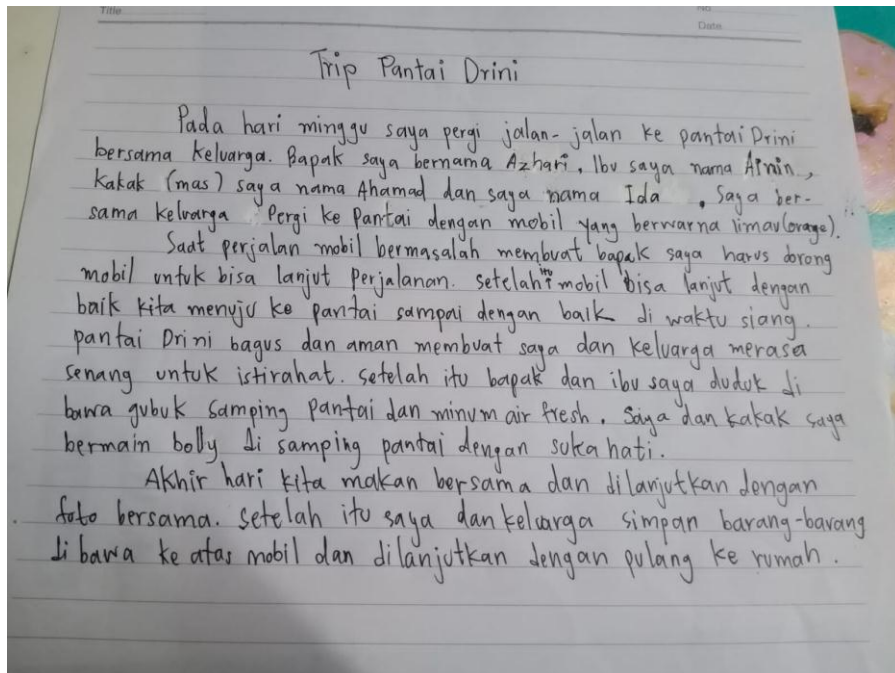 Title
No
Date
Trip Pantai Drini
Pada hari minggu saya pergi jalan-jalan ke pantai Drini
bersama keluarga. Bapak saya bernama Azhari, Ibu saya nama Ainin,
Kakak (mas) saya nama Ahamad dan saya nama Ida . Saya ber-
sama keluarga Pergi ke Pantai dengan mobil yang berwarna limau(orage).
Saat perjalan mobil bermasalah membuat bapak saya harus dorong
mobil untuk bisa lanjut perjalanan. setelah itu mobil bisa lanjut dengan
baik kita menuju ke pantai sampai dengan baik di waktu siang.
pantai Drini bagus dan aman membuat saya dan keluarga merasa
senang untuk istirahat. setelah itu bapak dan ibu saya duduk di
bawa gubuk samping pantai dan minum air fresh. Saya dan kakak saya
bermain bolly di samping pantai dengan suka hati.
Akhir hari kita makan bersama dan dilanjutkan dengan
foto bersama. setelah itu saya dan keluarga simpan barang-barang
di bawa ke atas mobil dan dilanjutkan dengan pulang ke rumah.